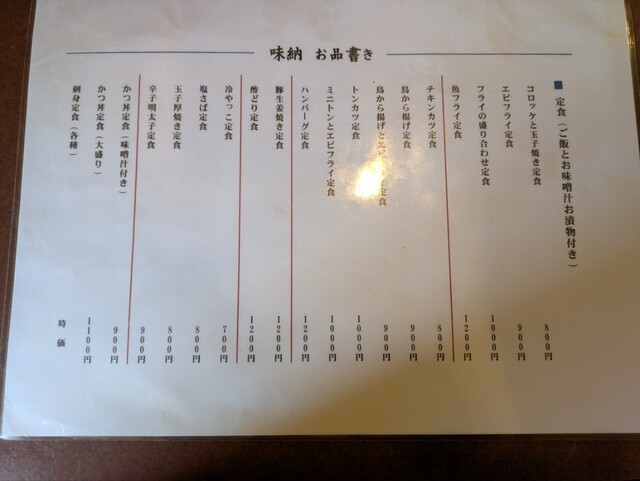 味納 お品書き
■ 定食(ご飯とお味噌汁お漬物付き)
コロッケと玉子焼き定食 800円
エビフライ定食 900円
フライの盛り合わせ定食 1000円
魚フライ定食 1200円
チキンカツ定食 800円
鳥から揚げ定食 900円
鳥から揚げとエビ 定食 900円
トンカツ定食 1000円
ミニトンとエビフライ定食 1000円
ハンバーグ定食 1200円
豚生姜焼き定食 1200円
酢どり定食 1200円
冷やっこ定食 700円
塩さば定食 800円
玉子厚焼き定食 800円
辛子明太子定食 900円
かつ丼定食(味噌汁付き) 900円
かつ丼定食(大盛り) 1100円
刺身定食(各種) 時価